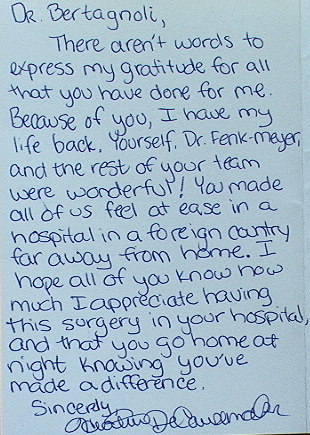 Dr. Bertagnoli,
There aren't words to
express my gratitude for all
that you have done for me.
Because of you, I have my
life back. Yourself, Dr. Fenk-meyer,
and the rest of your team
were wonderful! You made
all of us feel at ease in a
hospital in a foreign country
far away from home. I
hope all of you know how
much I appreciate having
this surgery in your hospital,
and that you go home at
night knowing you've
made a difference.
Sincerely,